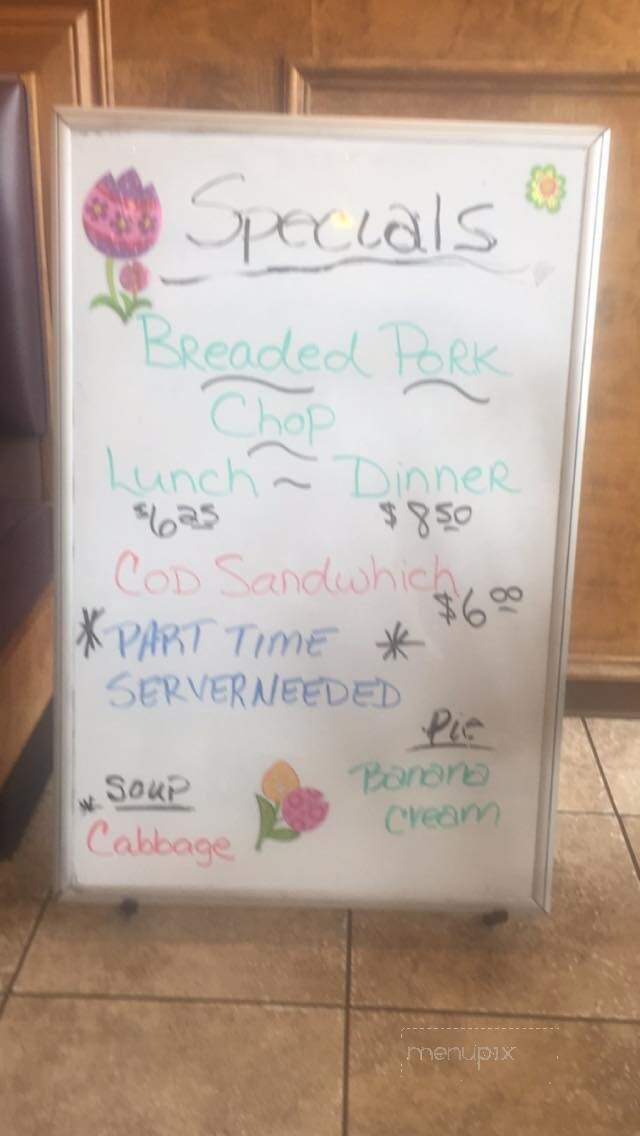 Specials
Breaded Pork
Chop
Lunch ~ Dinner
$6.25 $8.50
Cod Sandwhich
$6.00
* PART TIME *
SERVER NEEDED
Pie
Banana
Cream
* SOUP
Cabbage
menupix